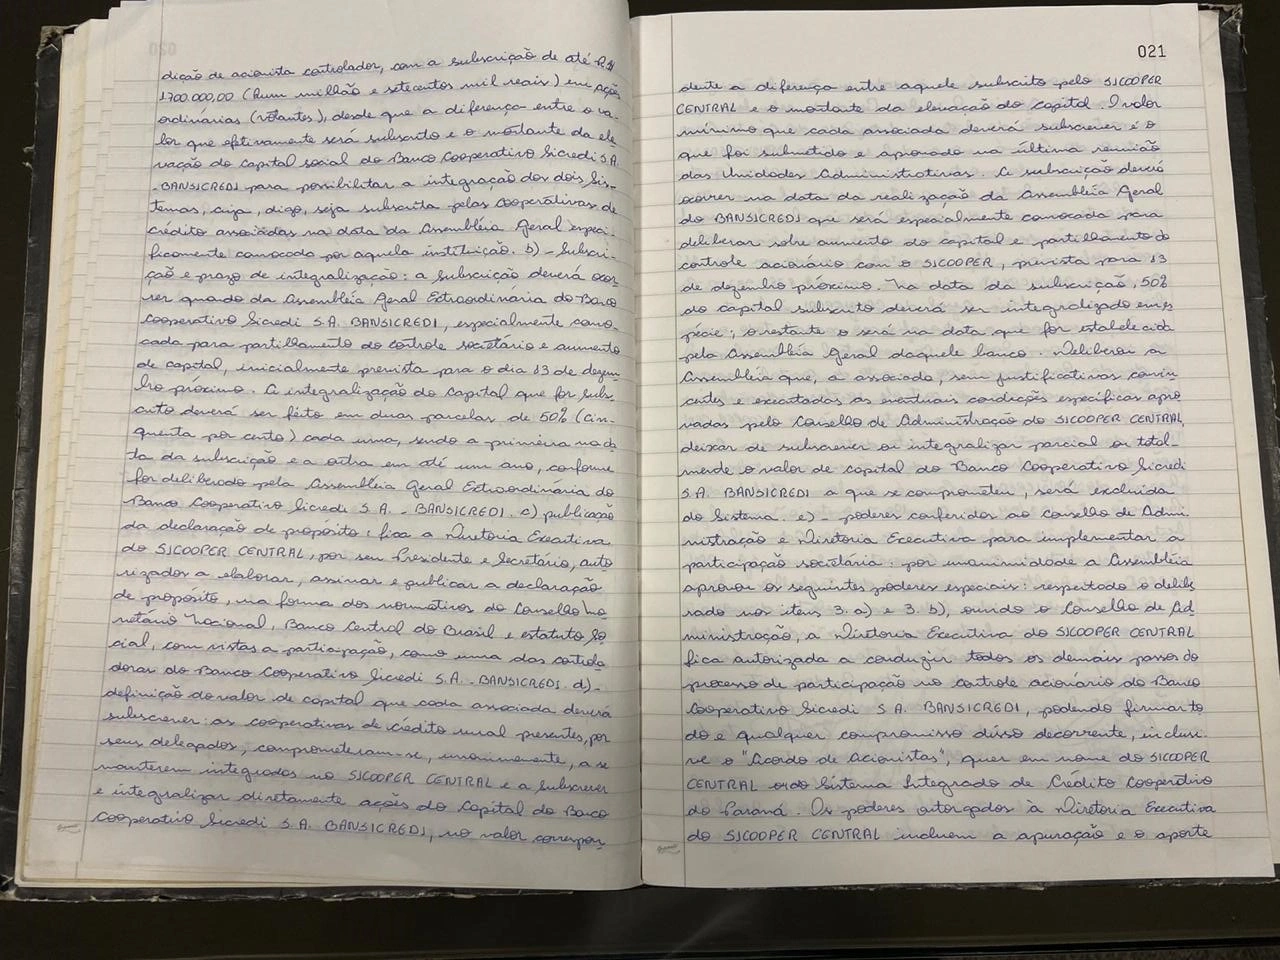 dição de acionista controlador, com a subscrição de até R$
1.700.000,00 (Hum milhão e setecentos mil reais) em ações
ordinárias (votantes), desde que a diferença entre o va-
lor que efetivamente será subscrito e o montante da ele
vação do capital social do Banco Cooperativo Sicredi S.A.
-BANSICREDI para possibilitar a integração dos dois Sis-
temas, cija, digo, seja subscrita pelas cooperativas de
crédito associadas na data da Assembléia Geral especi-
ficamente convocada por aquela instituição. b)- Subscri-
ção e prazo de integralização: a subscrição deverá ocor
rer quando da Assembléia Geral Extraordinária do Banco
Cooperativo Sicredi S.A. BANSICREDI, especialmente convo-
cada para partilhamento do controle societário e aumento
de capital, inicialmente prevista para o dia 13 de dezem-
bro próximo. A integralização do capital que for subs-
crito deverá ser feito em duas parcelas de 50% (cin-
quenta por cento) cada uma, sendo a primeira na da
ta da subscrição e a outra em até um ano, conforme
for deliberado pela Assembléia Geral Extraordinária do
Banco Cooperativo Sicredi S.A. - BANSICREDI. c) publicação
da declaração de propósito: fica a Diretoria Executiva
do SICOOPER CENTRAL, por seu Presidente e Secretário, auto
rizados a elaborar, assinar e publicar a declaração
de propósito, na forma dos normativos do Conselho Mo
netário Nacional, Banco Central do Brasil e estatuto So
cial, com vistas a participação, como uma das contola
doras do Banco Cooperativo Sicredi S.A. - BANSICREDI. d)-
definição do valor de capital que cada associada deverá
subscrever: as cooperativas de crédito rural presentes, por
seus delegados, comprometeram-se, unanimemente, a se
manterem integradas no SICOOPER CENTRAL e a subscrever
e integralizar diretamente ações do Capital do Banco
Cooperativo Sicredi S.A. BANSICREDI, no valor correspon
021
dente a diferença entre aquele subscrito pelo SICOOPER
CENTRAL e o montante da elevação do capital. O valor
mínimo que cada associada deverá subscrever é o
que foi submetido e aprovado na última reunião
das Unidades Administrativas. A subscrição deverá
ocorrer na data da realização da Assembléia Geral
do BANSICREDI que será especialmente convocada para
deliberar sobre aumento do capital e partilhamento do
controle acionário com o SICOOPER, prevista para 13
de dezembro próximo. Na data da subscrição, 50%
do capital subscrito deverá ser integralizado em es
pécie; o restante o será na data que for estabelecida
pela Assembléia Geral daquele banco. Deliberou a
Assembléia que, a associada, sem justificativas convin
centes e executadas as eventuais condições específicas apro
vadas pelo Conselho de Administração do SICOOPER CENTRAL,
deixar de subscrever ou integralizar parcial ou total-
mente o valor de capital do Banco Cooperativo Sicredi
S.A. BANSICREDI a que se comprometeu, será excluída
do Sistema. e)- poderes conferidos ao Conselho de Admi-
nistração e Diretoria Executiva para implementar a
participação societária: por unanimidade a Assembléia
aprovou os seguintes poderes especiais: respeitado o delibe
rado nos itens 3. a) e 3. b), ouvido o Conselho de Ad-
ministração, a Diretoria Executiva do SICOOPER CENTRAL
fica autorizada a conduzir todos os demais passos do
processo de participação no controle acionário do Banco
Cooperativo Sicredi S.A. BANSICREDI, podendo firmar to
do e qualquer compromisso disso decorrente, inclusi-
ve o "Acordo de Acionistas", quer em nome do SICOOPER
CENTRAL ou do Sistema Integrado de Crédito Cooperativo
do Paraná. Os poderes outorgados à Diretoria Executiva
do SICOOPER CENTRAL incluem a apuração e o aporte